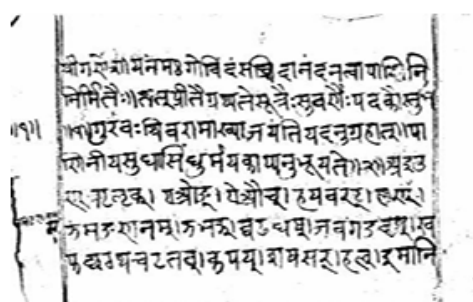 श्रीगणेशायनमः गोविंदंसच्चिदानंदंनत्वापाणिनि
निर्मितैः॥तत्प्रीतैग्रथ्यतेसूत्रैःसुवर्णैःपदकौस्तुभ
॥१॥ गुरवःश्चिवरामाख्याजयंतियदनुग्रहात्॥पा
णिनीयसुधासिंधुर्मयकाप्यनुभूयते॥२॥अइउ
ण् ऋऌक्। एओङ्। ऐऔच्। हयवरट्। लण्।
ञमङणनम्। झभञ्। घढधष्। जबगडदश्। ख
फछठथचटतव्। कपय्। शषसर्। हल्। इमानि